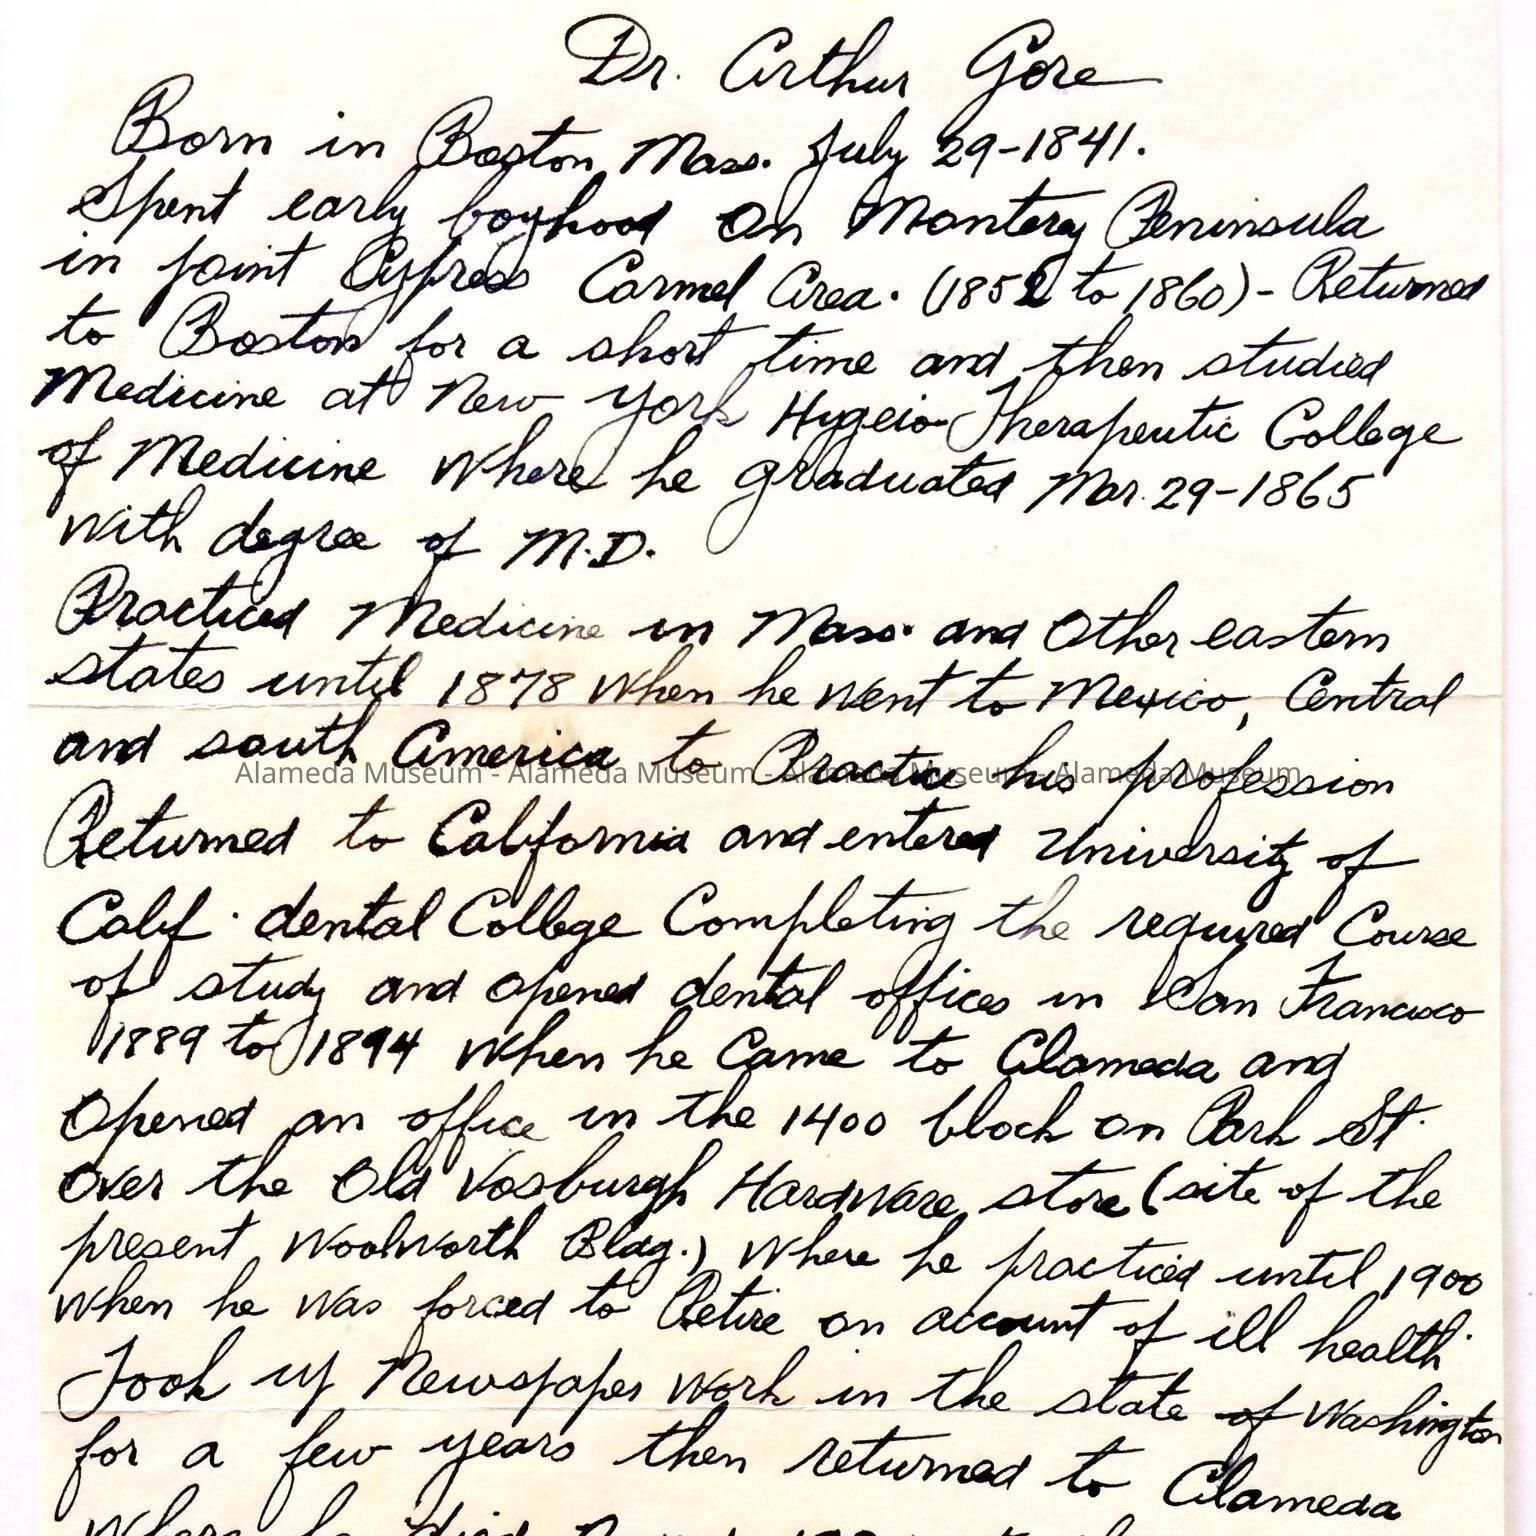 Dr. Arthur Gore
Born in Boston Mass. July 29-1841.
Spent early boyhood on Monterey Peninsula
in joint Cypress Carmel Area. (1852 to 1860) - Returned
to Boston for a short time and then studied
Medicine at New York Hygeio-Therapeutic College
of Medicine Where he graduated Mar. 29-1865
With degree of M.D.
Practiced Medicine in Mass. and Other eastern
states until 1878 When he went to Mexico, Central
and south America to Practice his profession
Alameda Museum - Alameda Museum - Alameda Museum - Alameda Museum
Returned to California and entered University of
Calif. dental College Completing the required Course
of study and opened dental offices in San Francisco
1889 to 1894 When he Came to Alameda and
Opened an office in the 1400 block on Park St.
Over the Old Vosburgh Hardware store (site of the
present Woolworth Bldg.) Where he practiced until 1900
When he was forced to Retire on account of ill health.
Took up Newspaper work in the state of Washington
for a few years then returned to Alameda
Where he died